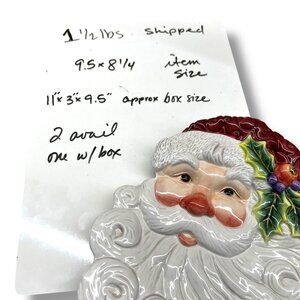 1 1/2 lbs shipped
9.5 x 8 1/4 item
size
11" x 3" x 9.5" approx box size
2 avail
one w/box